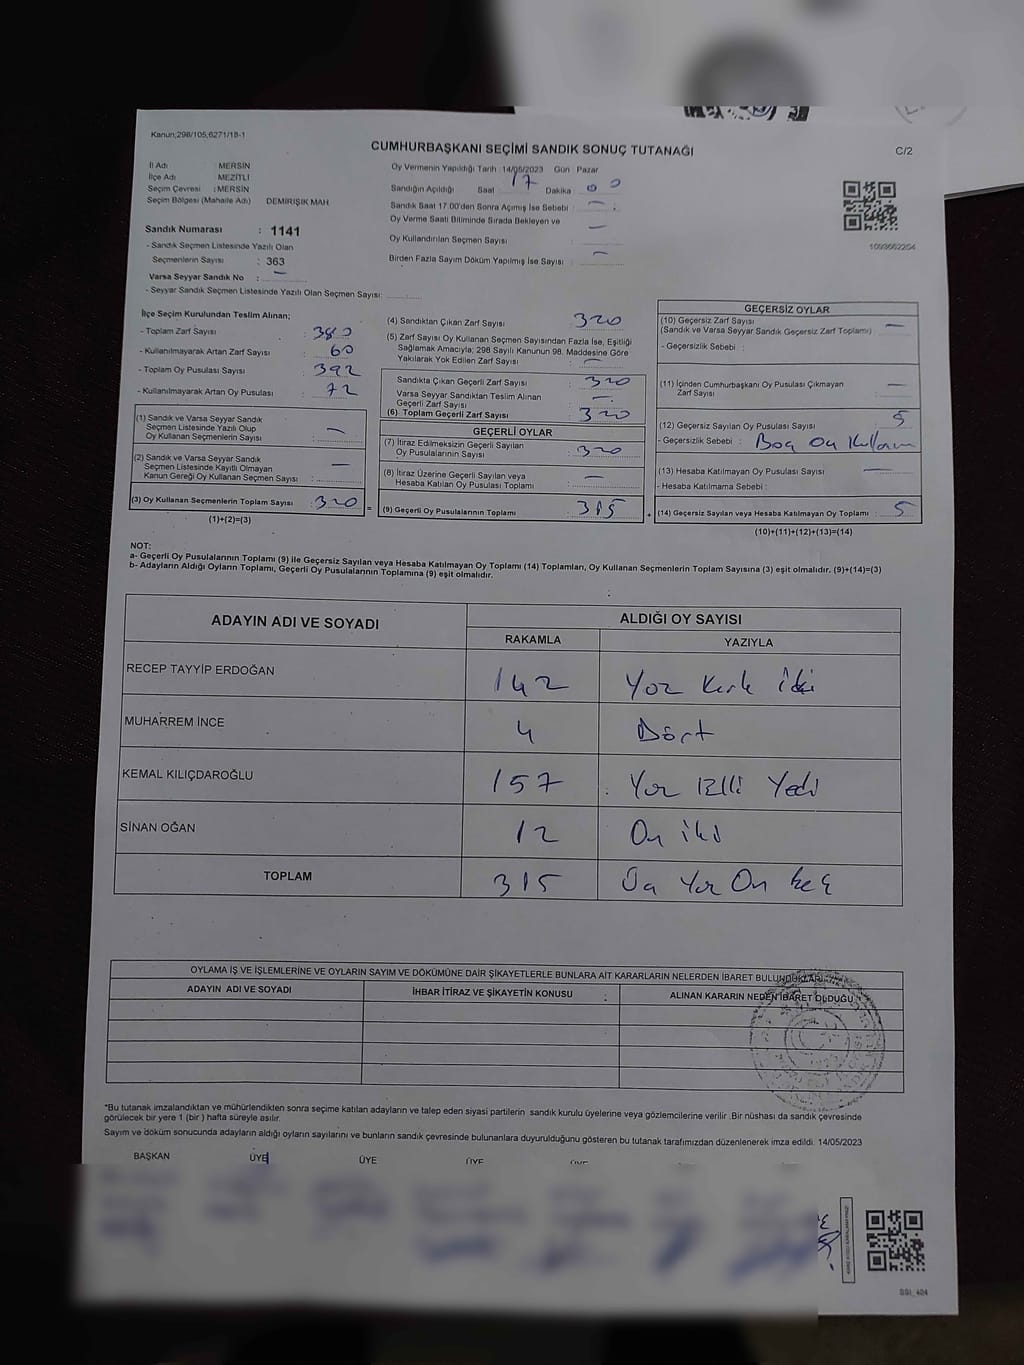 Kanun;298/105,6271/18-1
CUMHURBAŞKANI SEÇİMİ SANDIK SONUÇ TUTANAĞI
C/2
İl Adı : MERSİN
İlçe Adı : MEZİTLİ
Seçim Çevresi : MERSİN
Seçim Bölgesi (Mahalle Adı) DEMİRIŞIK MAH.
Sandık Numarası : 1141
- Sandık Seçmen Listesinde Yazılı Olan
Seçmenlerin Sayısı : 363
Varsa Seyyar Sandık No : —
- Seyyar Sandık Seçmen Listesinde Yazılı Olan Seçmen Sayısı:
Oy Vermenin Yapıldığı Tarih :14/05/2023 Gün : Pazar
Sandığın Açıldığı Saat 17 Dakika 00
Sandık Saat 17.00'den Sonra Açımış İse Sebebi : —
Oy Verme Saati Bitiminde Sırada Bekleyen ve
Oy Kullandırılan Seçmen Sayısı : —
Birden Fazla Sayım Döküm Yapılmış İse Sayısı : —
1093662204
İlçe Seçim Kurulundan Teslim Alınan;
- Toplam Zarf Sayısı : 380
- Kullanılmayarak Artan Zarf Sayısı : 60
- Toplam Oy Pusulası Sayısı : 392
- Kullanılmayarak Artan Oy Pusulası : 72
(1) Sandık ve Varsa Seyyar Sandık
Seçmen Listesinde Yazılı Olup
Oy Kullanan Seçmenlerin Sayısı : —
(2) Sandık ve Varsa Seyyar Sandık
Seçmen Listesinde Kayıtlı Olmayan
Kanun Gereği Oy Kullanan Seçmen Sayısı : —
(3) Oy Kullanan Seçmenlerin Toplam Sayısı : 320
(1)+(2)=(3)
(4) Sandıktan Çıkan Zarf Sayısı : 320
(5) Zarf Sayısı Oy Kullanan Seçmen Sayısından Fazla İse, Eşitliği
Sağlamak Amacıyla; 298 Sayılı Kanunun 98. Maddesine Göre
Yakılarak Yok Edilen Zarf Sayısı : —
Sandıkta Çıkan Geçerli Zarf Sayısı : 320
Varsa Seyyar Sandıktan Teslim Alınan
Geçerli Zarf Sayısı : —
(6) Toplam Geçerli Zarf Sayısı : 320
GEÇERLİ OYLAR
(7) İtiraz Edilmeksizin Geçerli Sayılan
Oy Pusulalarının Sayısı : 320
(8) İtiraz Üzerine Geçerli Sayılan veya
Hesaba Katılan Oy Pusulası Toplamı : —
= (9) Geçerli Oy Pusulalarının Toplamı : 315 +
GEÇERSİZ OYLAR
(10) Geçersiz Zarf Sayısı : —
(Sandık ve Varsa Seyyar Sandık Geçersiz Zarf Toplamı)
- Geçersizlik Sebebi :
(11) İçinden Cumhurbaşkanı Oy Pusulası Çıkmayan
Zarf Sayısı : —
(12) Geçersiz Sayılan Oy Pusulası Sayısı : 5
- Geçersizlik Sebebi : Boş Oy
(13) Hesaba Katılmayan Oy Pusulası Sayısı : —
- Hesaba Katılmama Sebebi :
(14) Geçersiz Sayılan veya Hesaba Katılmayan Oy Toplamı : 5
(10)+(11)+(12)+(13)=(14)
NOT:
a- Geçerli Oy Pusulalarının Toplamı (9) ile Geçersiz Sayılan veya Hesaba Katılmayan Oy Toplamı (14) Toplamları, Oy Kullanan Seçmenlerin Toplam Sayısına (3) eşit olmalıdır. (9)+(14)=(3)
b- Adayların Aldığı Oyların Toplamı, Geçerli Oy Pusulalarının Toplamına (9) eşit olmalıdır.
ADAYIN ADI VE SOYADI ALDIĞI OY SAYISI
RAKAMLA YAZIYLA
RECEP TAYYİP ERDOĞAN 142 Yüz Kırk İki
MUHARREM İNCE 4 Dört
KEMAL KILIÇDAROĞLU 157 Yüz Elli Yedi
SİNAN OĞAN 12 On iki
TOPLAM 315 Üç Yüz On beş
OYLAMA İŞ VE İŞLEMLERİNE VE OYLARIN SAYIM VE DÖKÜMÜNE DAİR ŞİKAYETLERLE BUNLARA AİT KARARLARIN NELERDEN İBARET BULUNDUKLARI
ADAYIN ADI VE SOYADI İHBAR İTİRAZ VE ŞİKAYETİN KONUSU ALINAN KARARIN NEDEN İBARET OLDUĞU
*Bu tutanak imzalandıktan ve mühürlendikten sonra seçime katılan adayların ve talep eden siyasi partilerin sandık kurulu üyelerine veya gözlemcilerine verilir. Bir nüshası da sandık çevresinde
görülecek bir yere 1 (bir ) hafta süreyle asılır.
Sayım ve döküm sonucunda adayların aldığı oyların sayılarını ve bunların sandık çevresinde bulunanlara duyurulduğunu gösteren bu tutanak tarafımızdan düzenlenerek imza edildi. 14/05/2023
BAŞKAN ÜYE ÜYE ÜYE ÜYE
SSI_404